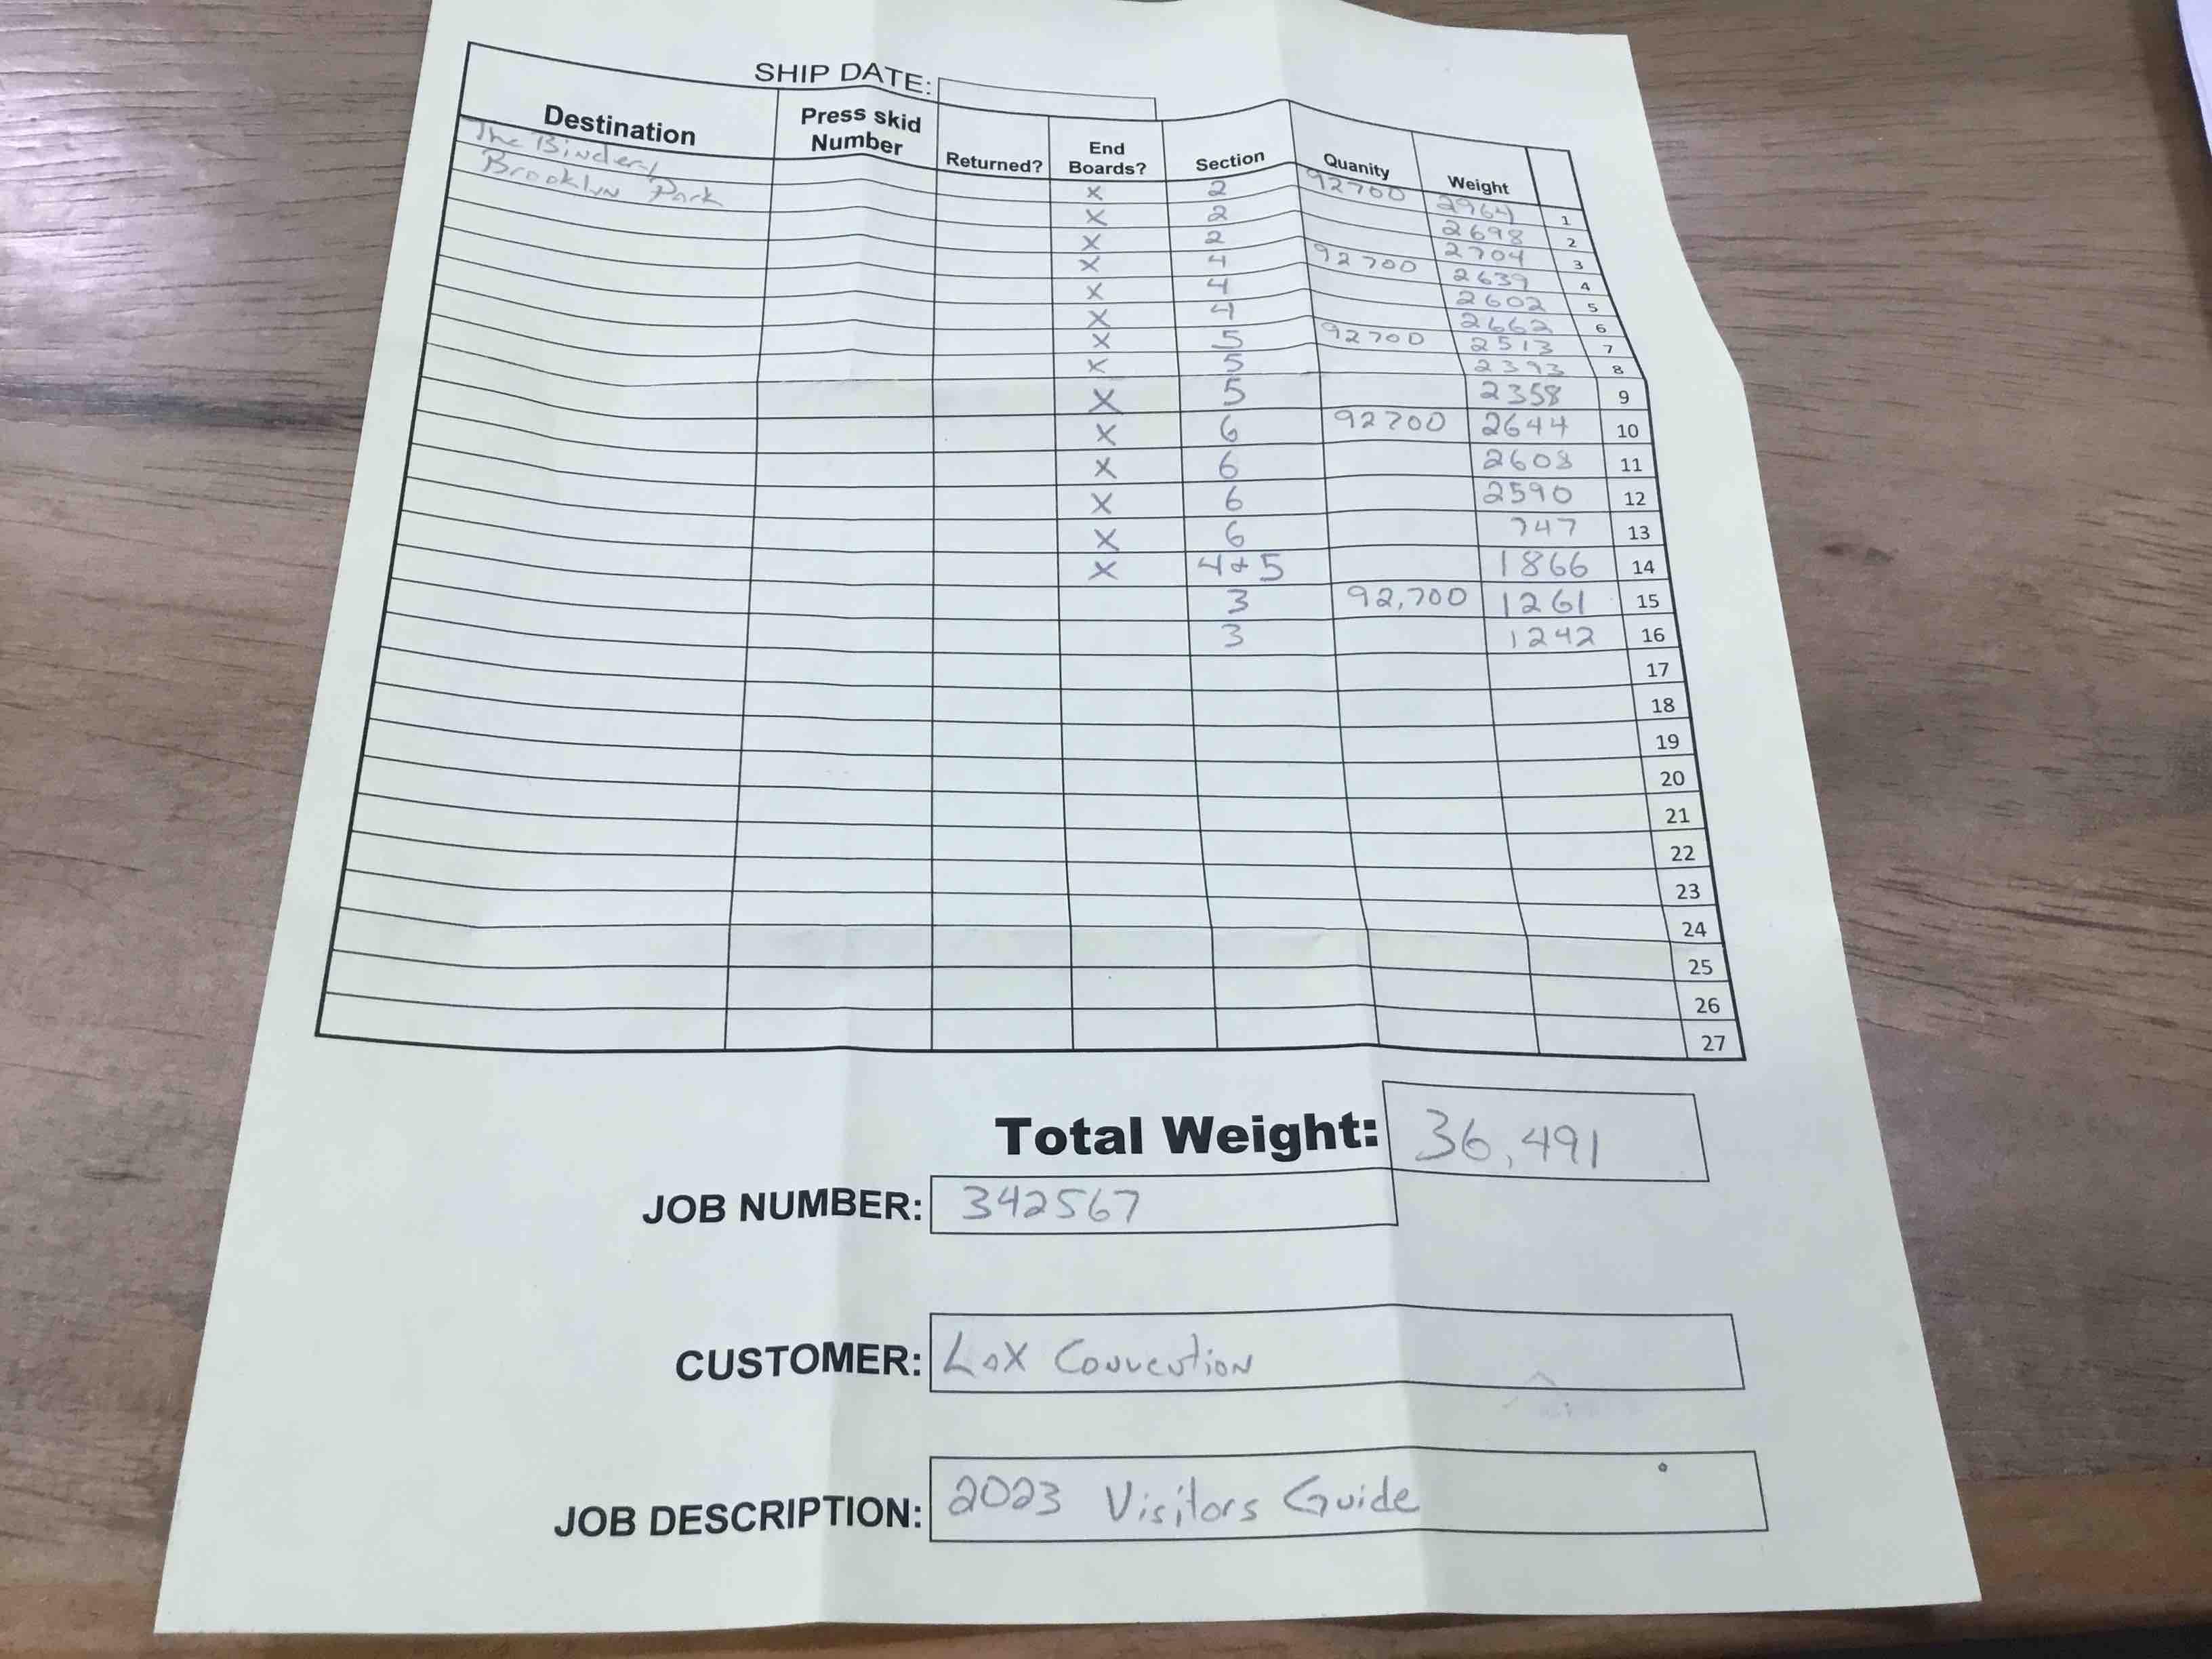 SHIP DATE:
Destination Press skid Number Returned? End Boards? Section Quanity Weight
The Bindery X 2 92700 2964 1
Brooklyn Park X 2 2698 2
X 2 2704 3
X 4 92700 2639 4
X 4 2602 5
X 4 2662 6
X 5 92700 2513 7
X 5 2393 8
X 5 2358 9
X 6 92700 2644 10
X 6 2608 11
X 6 2590 12
X 6 747 13
X 4+5 1866 14
3 92,700 1261 15
3 1242 16
17
18
19
20
21
22
23
24
25
26
27
Total Weight: 36,491
JOB NUMBER: 342567
CUSTOMER: LaX Convention
JOB DESCRIPTION: 2023 Visitors Guide